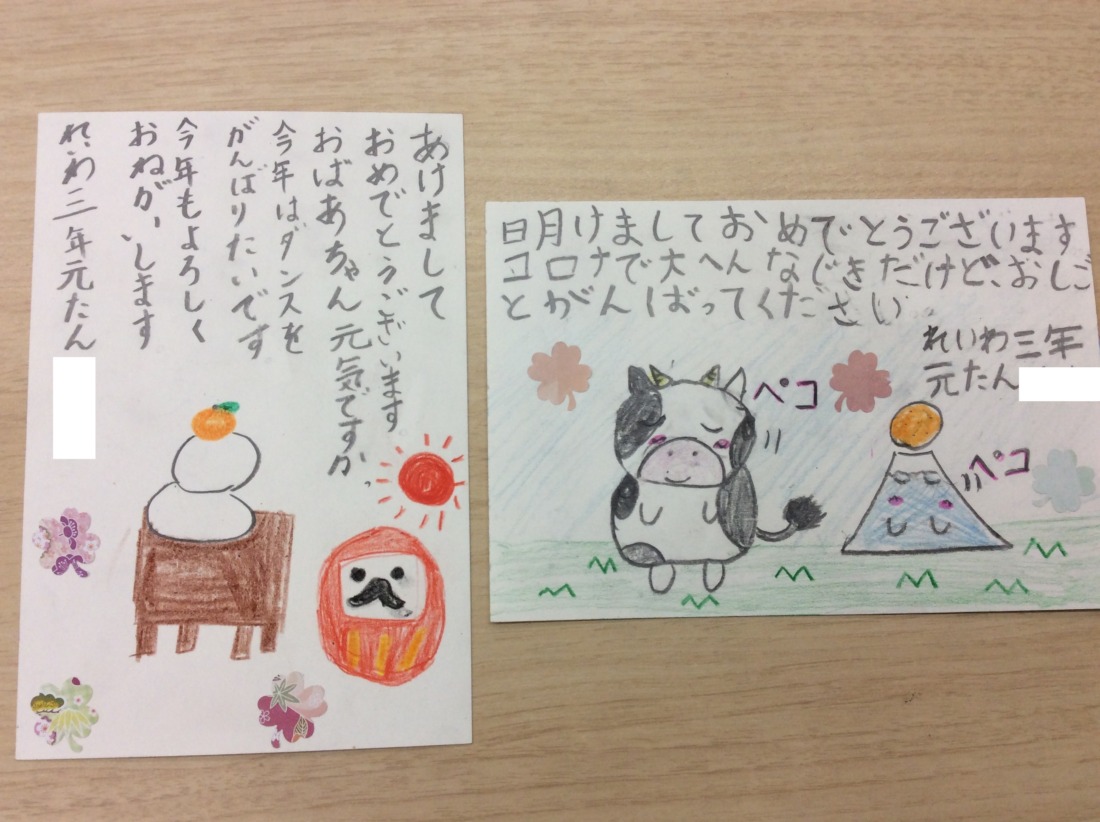 あけまして
おめでとうございます
おばあちゃん元気ですか。
今年はダンスを
がんばりたいです
今年もよろしく
おねがいします
れいわ三年元たん
明けましておめでとうございます
コロナで大へんなじきだけど、おしご
とがんばってください
れいわ三年
元たん
ペコ
ペコ